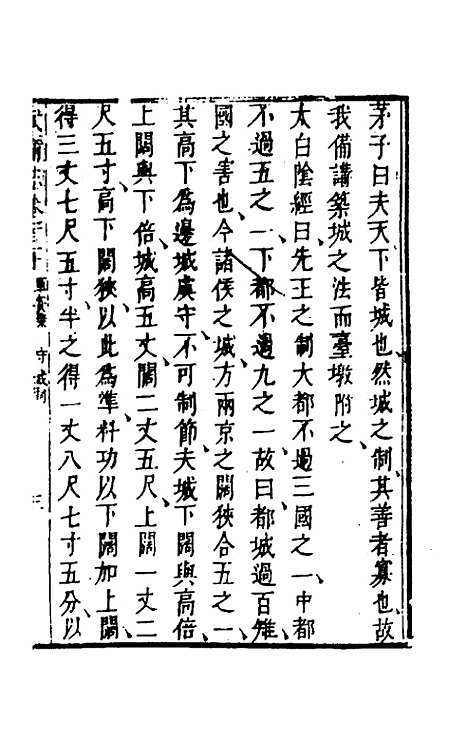 茅子曰夫天下皆城也然城之制其善者寡也故
我備講築城之法而臺墩附之
太白陰經曰先王之制大都不過三國之一中都
不過五之一下都不過九之一故曰都城過百雉
國之害也今諸侯之城方兩京之闊狹合五之一
其高下爲邊城虞守不可制節夫城下闊與高倍
上闊與下倍城高五丈闊二丈五尺上闊一丈二
尺五寸高下闊狹以此爲準料功以下闊加上闊
得三丈七尺五寸半之得一丈八尺七寸五分以
武備志卷
守 三